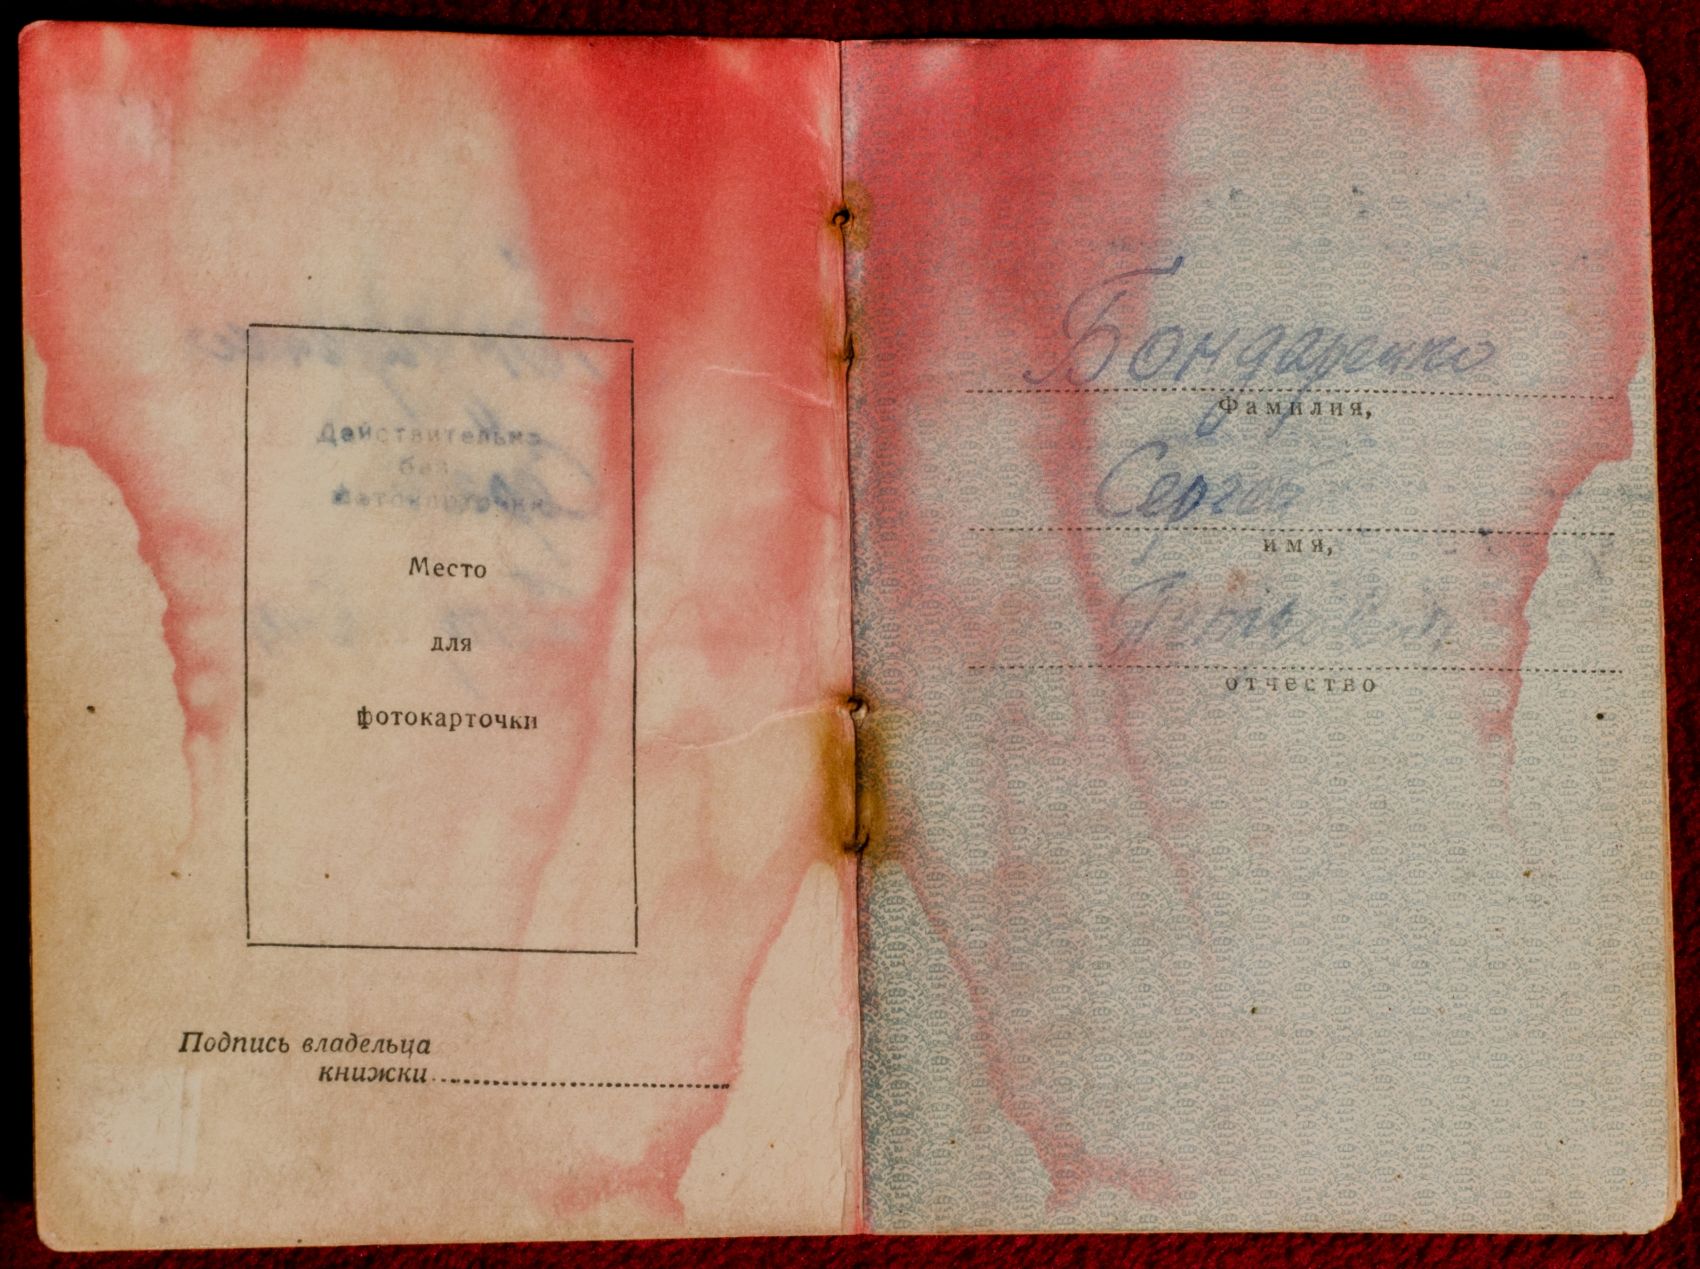 Действительно
без
фотокарточки
Место
для
фотокарточки
Подпись владельца
книжки
Бондаренко
Фамилия,
Сергей
имя,
отчество